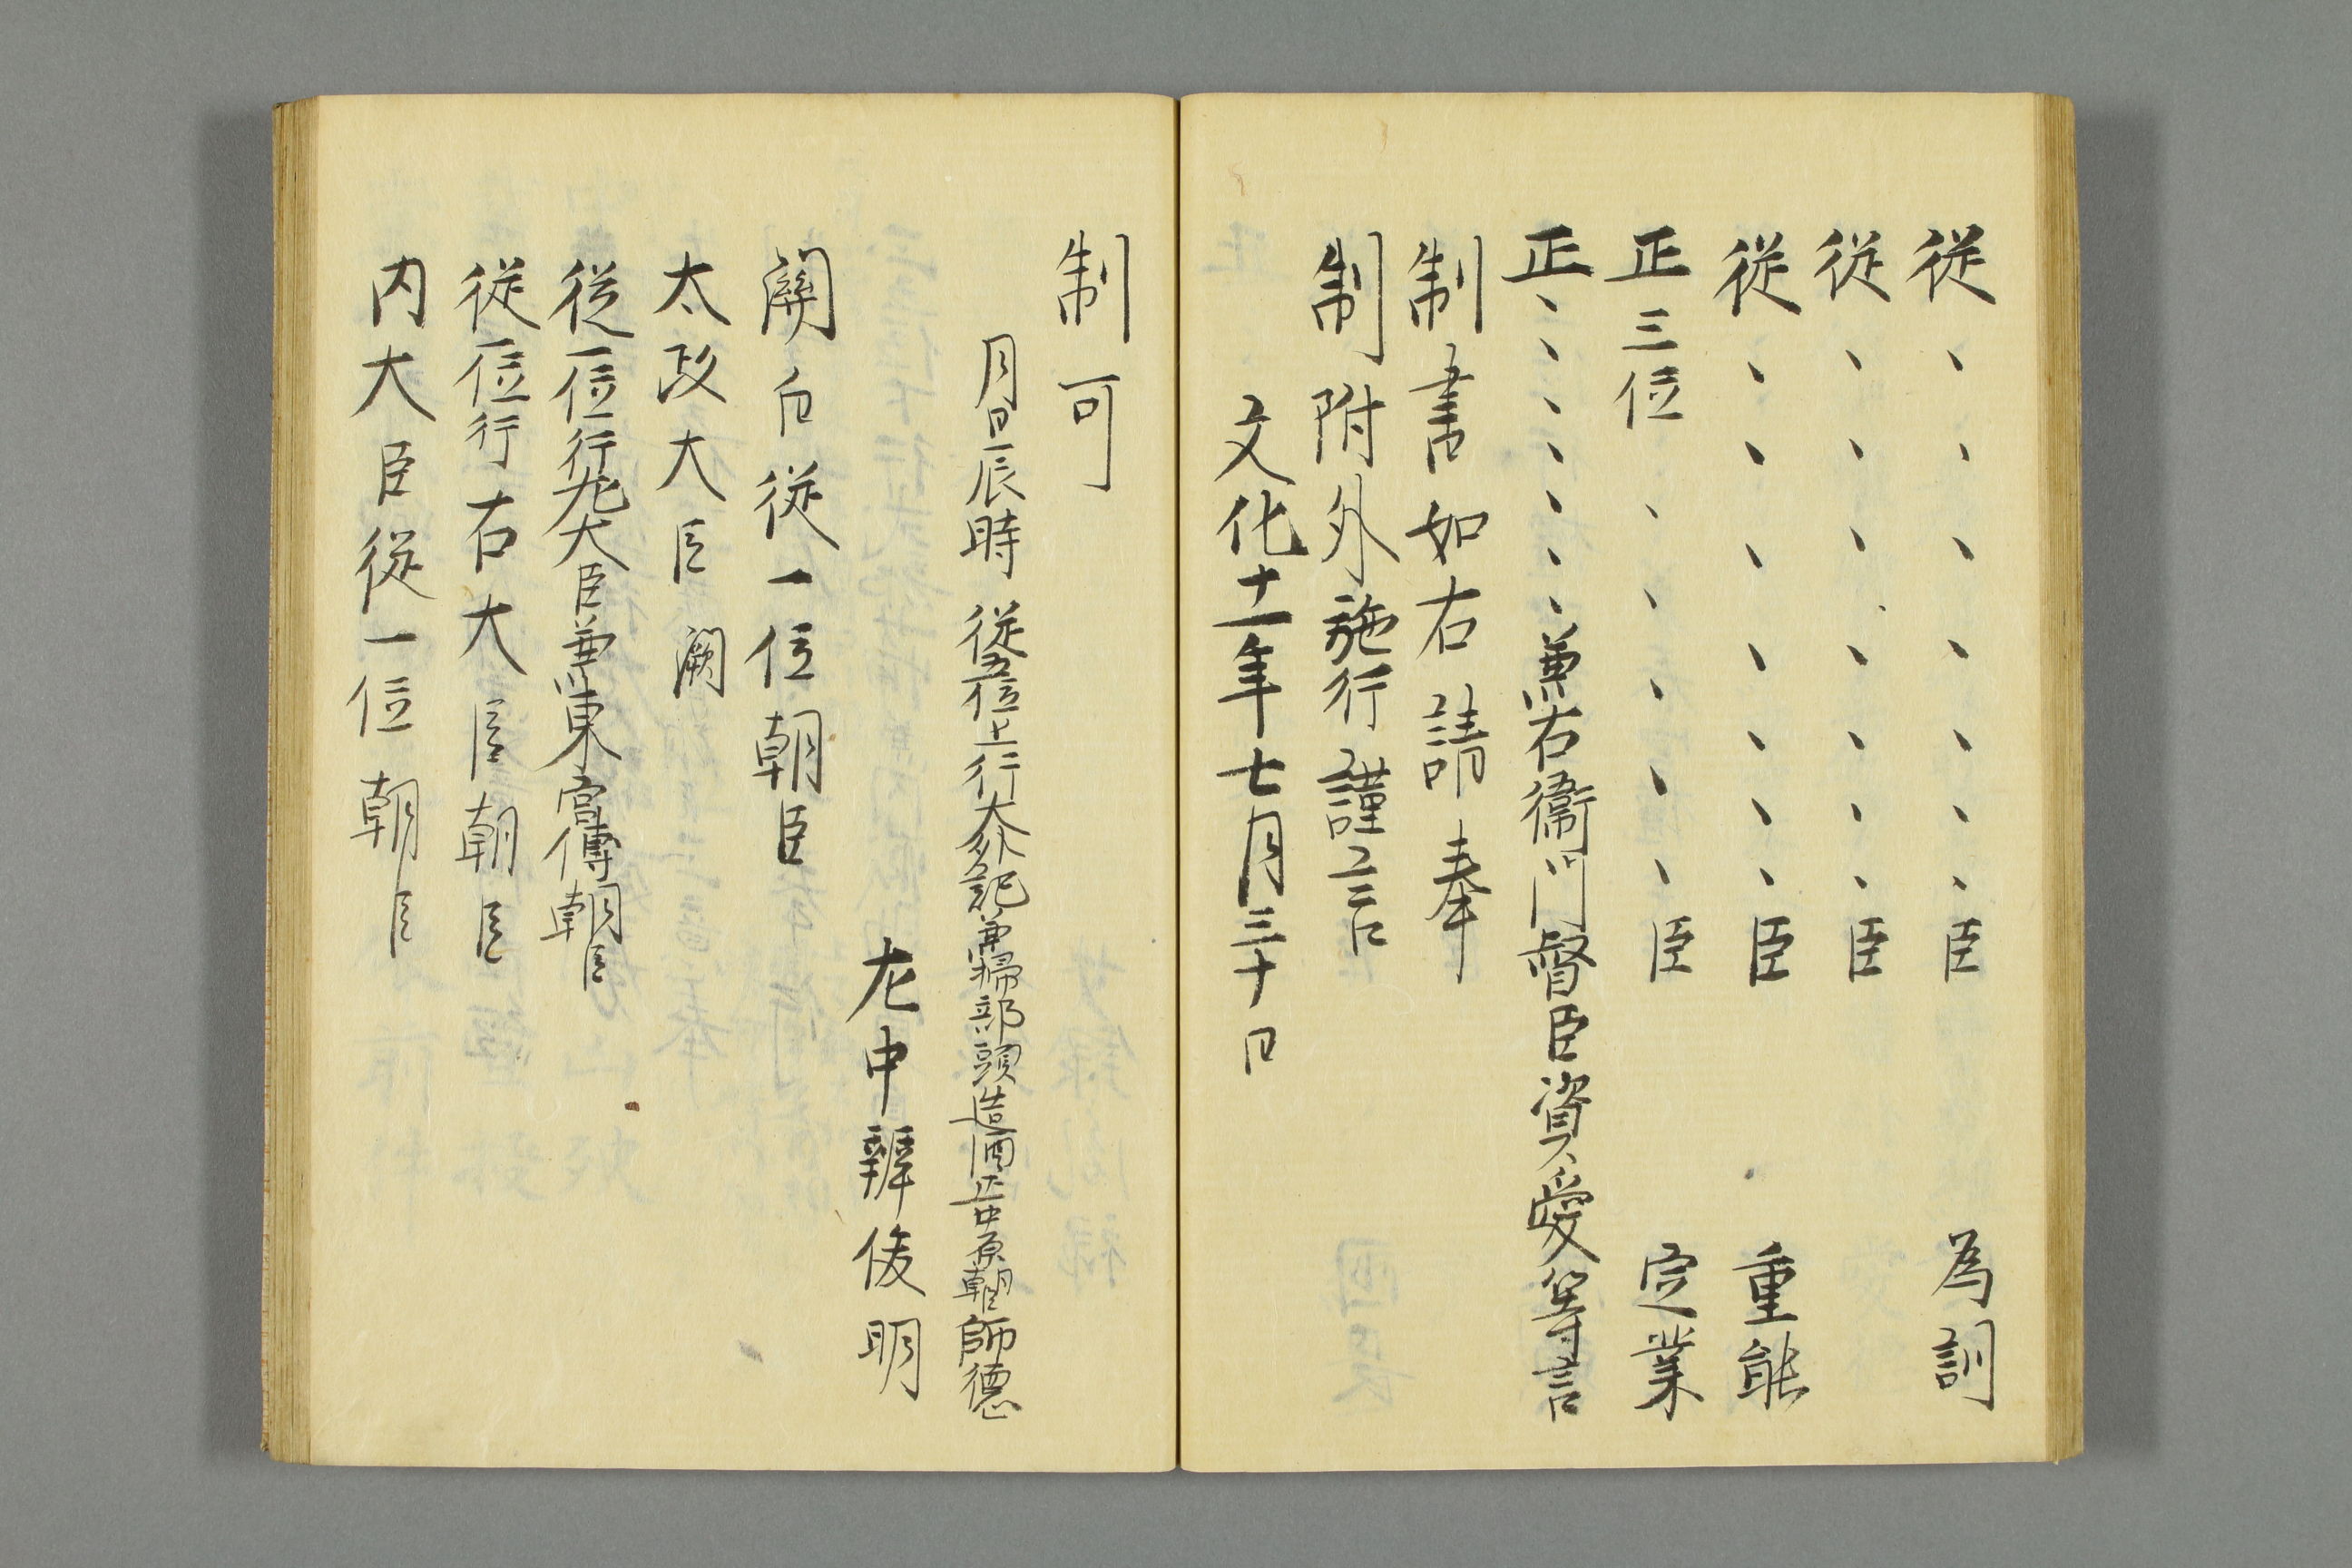 従、、、、、、、臣　為訓
従、、、、、、、臣
従、、、、、、、臣　重能
正三位、、、、、臣　定業
正、、、、、、、兼右衛門督臣資愛等言
制書如右請奉
制附外施行謹言
文化十一年七月三十日
制可
月日辰時　従五位上行大外記兼掃部頭造酒正中原朝臣師徳
左中辨俊明
關白従一位朝臣
太政大臣闕
従一位行左大臣兼東宮傅朝臣
従一位行右大臣朝臣
内大臣従一位朝臣